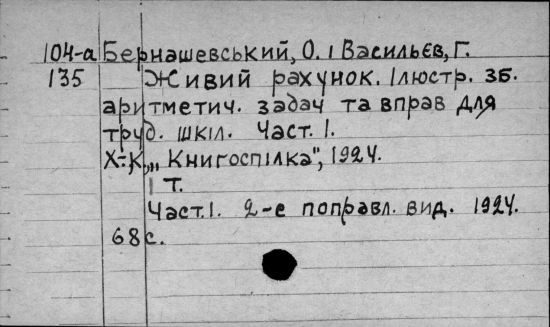 104-а Бернашевський, О. і Васильєв, Г.
135 Живий рахунок. Ілюстр. зб.
аритметич. задач та вправ для
труд. шкіл. Част. І.
Х-К, „Книгоспілка", 1924.
1 т.
Част.І. 2-е поправл. вид. 1924.
68 с.